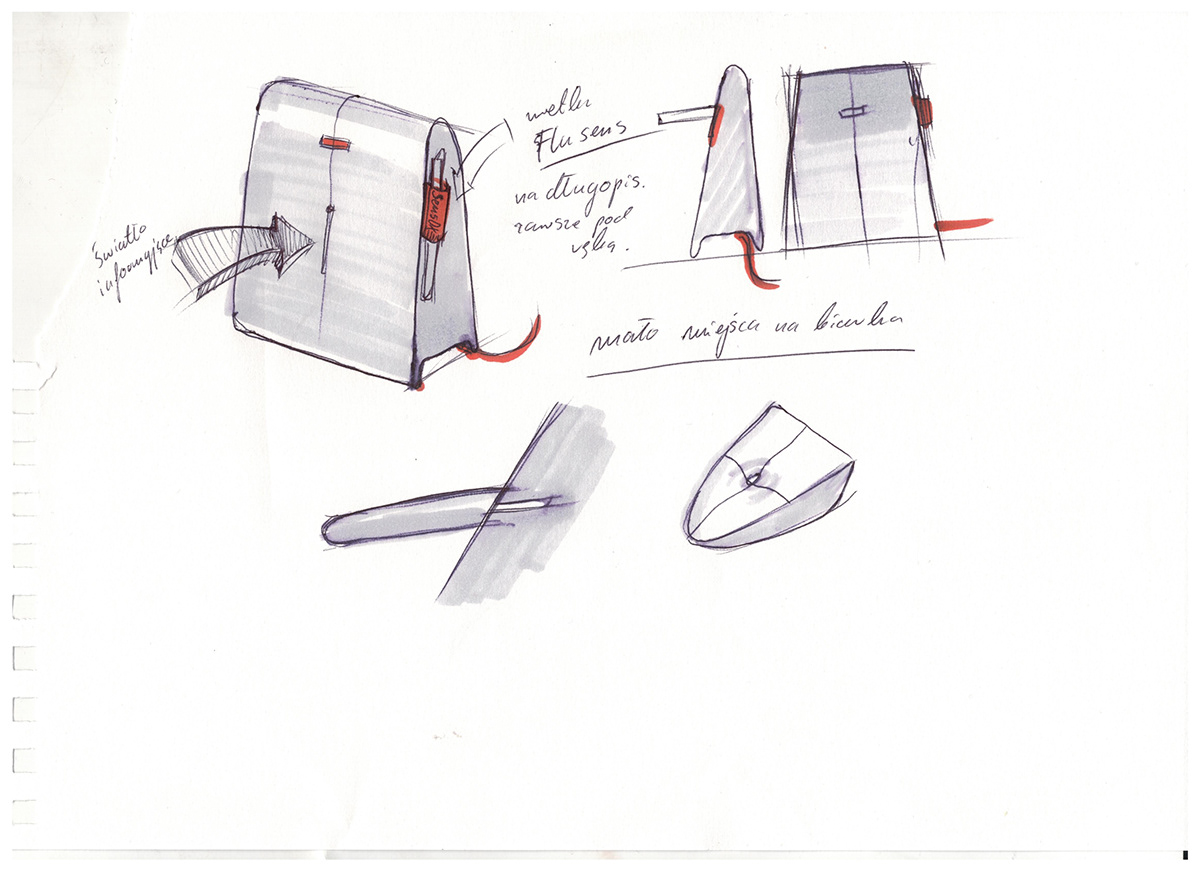 światło
informujące
metka
Flusens
na długopis.
zawsze pod
ręką.
mało miejsca na biurku